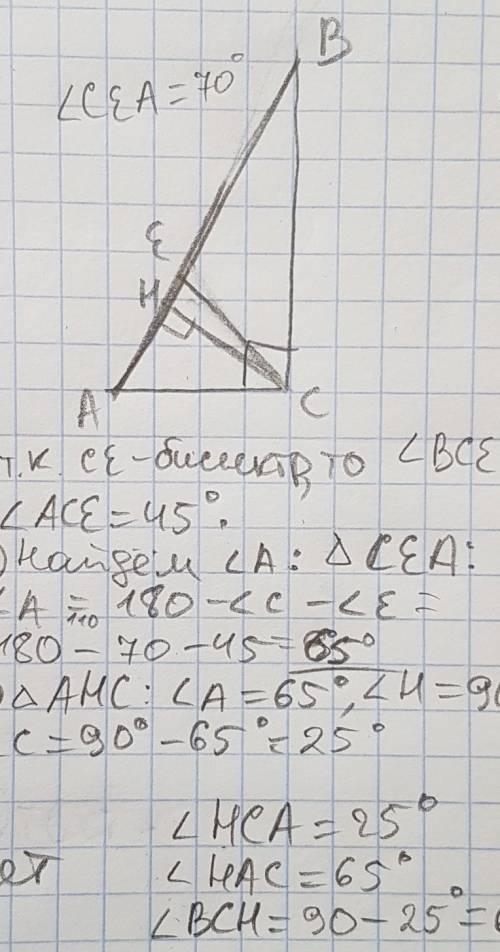 B
∠CEA = 70°
E
H
A
C
т.к. CE-биссект, то ∠BCE
∠ACE = 45°.
) Найдём ∠A: △CEA:
∠A = 180 - ∠C - ∠E =
110
180 - 70 - 45 = 65°
) △AHC: ∠A = 65°, ∠H = 90
∠C = 90° - 65° = 25°
∠HCA = 25°
ет ∠HAC = 65°
∠BCH = 90 - 25° = 6